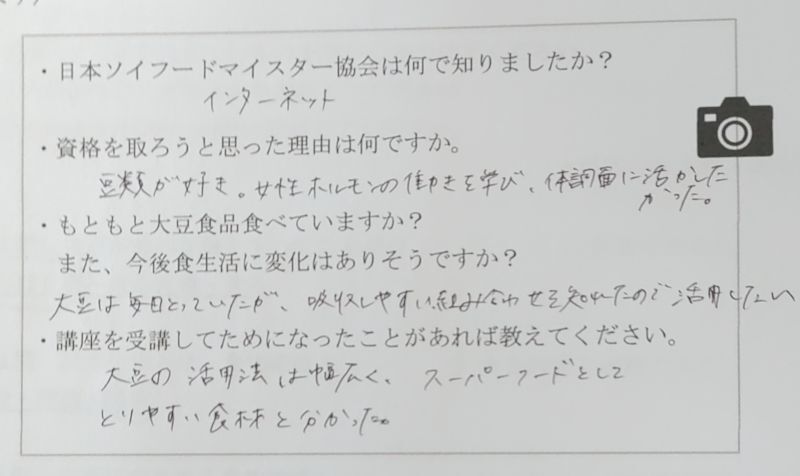 ・日本ソイフードマイスター協会は何で知りましたか？
インターネット
・資格を取ろうと思った理由は何ですか。
豆類が好き。女性ホルモンの働きを学び、体調面に活かした
かった。
・もともと大豆食品食べていますか？
また、今後食生活に変化はありそうですか？
大豆は毎日とっていたが、吸収しやすい組み合わせを知れたので活用したい
・講座を受講してためになったことがあれば教えてください。
大豆の活用法は幅広く、スーパーフードとして
とりやすい食材と分かった。